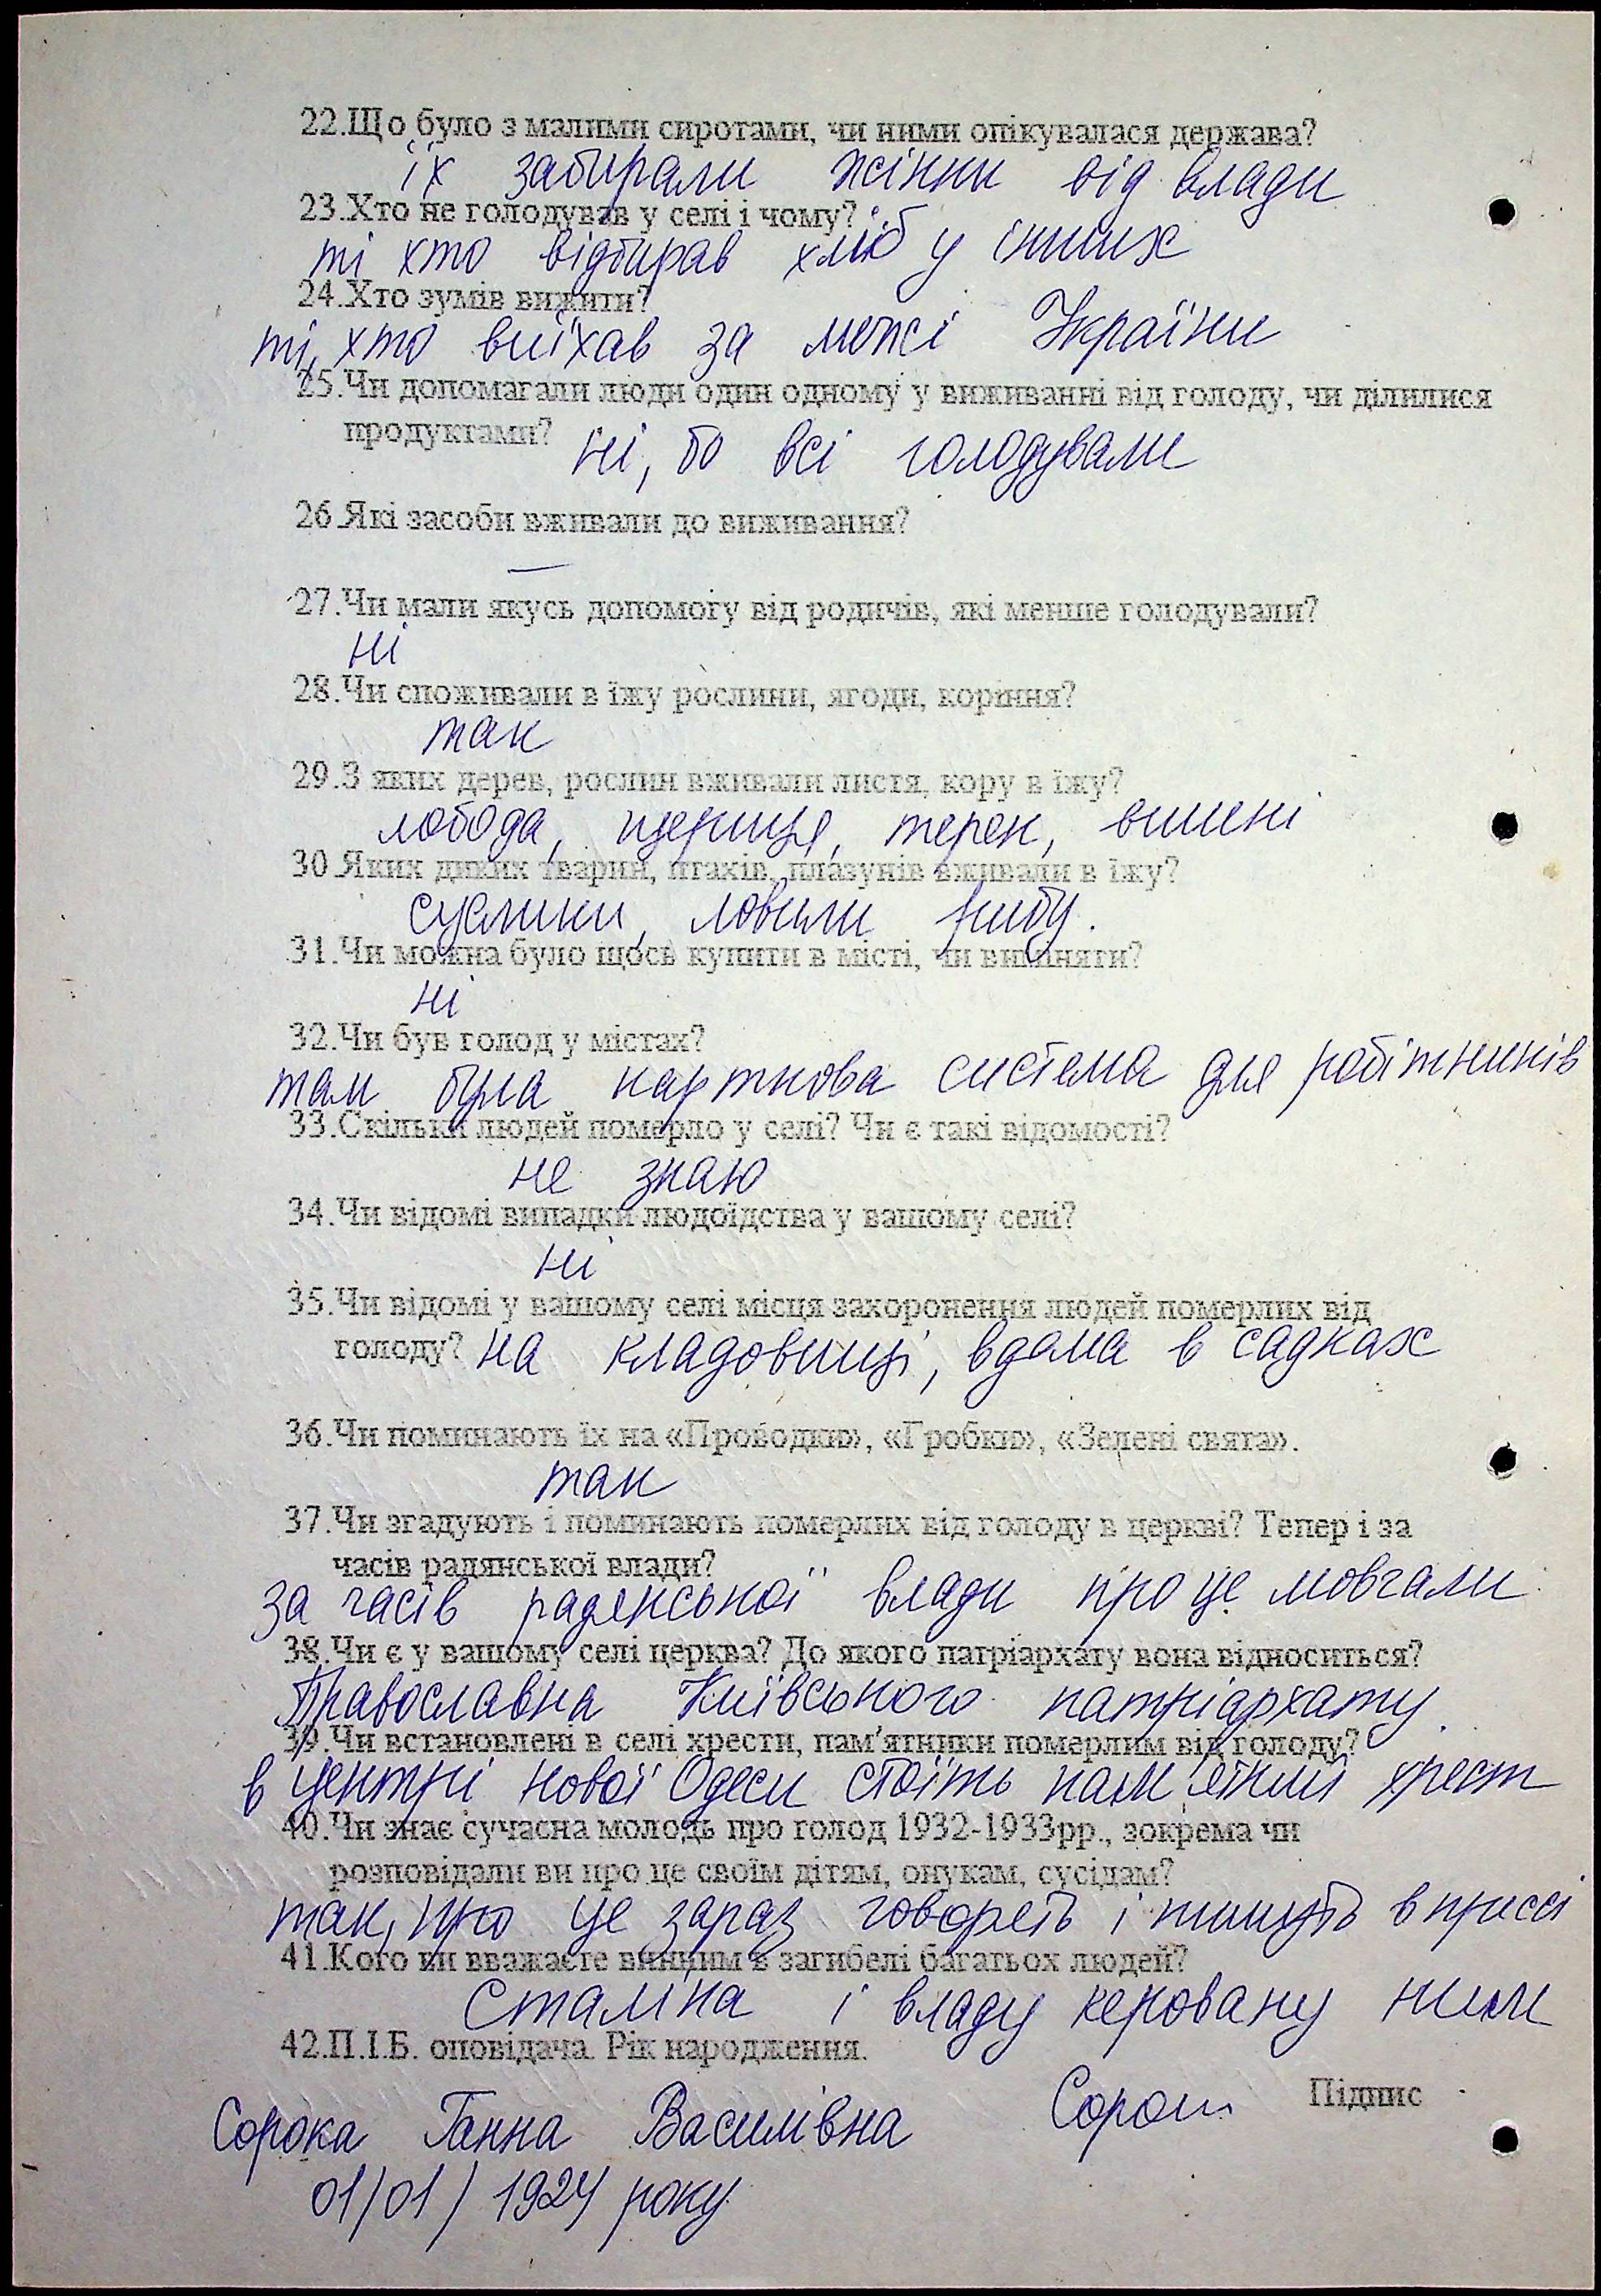 22.Що було з малими сиротами, чи ними опікувалася держава?
їх забирали жінки від влади
23.Хто не голодував у селі і чому?
ті хто відбирав хліб у інших
24.Хто зумів вижити?
ті, хто виїхав за межі України
25.Чи допомагали люди один одному у виживанні від голоду, чи ділилися
продуктами? ні, бо всі голодували
26.Які засоби вживали до виживання?
—
27.Чи мали якусь допомогу від родичів, які менше голодували?
ні
28.Чи споживали в їжу рослини, ягоди, коріння?
так
29.З яких дерев, рослин вживали листя, кору в їжу?
лобода, щериця, терен, вишні
30.Яких диких тварин, птахів, плазунів вживали в їжу?
суслики, ловили рибу.
31.Чи можна було щось купити в місті, чи виміняти?
ні
32.Чи був голод у містах?
там була карткова система для робітників
33.Скільки людей померло у селі? Чи є такі відомості?
не знаю
34.Чи відомі випадки людоїдства у вашому селі?
ні
35.Чи відомі у вашому селі місця захоронення людей померлих від
голоду? на кладовищі, вдома в садках
36.Чи поминають їх на «Проводки», «Гробки», «Зелені свята».
так
37.Чи згадують і поминають померлих від голоду в церкві? Тепер і за
часів радянської влади?
за часів радянської влади про це мовчали
38.Чи є у вашому селі церква? До якого патріархату вона відноситься?
Православна Київського патріархату.
39.Чи встановлені в селі хрести, пам'ятники померлим від голоду?
в центрі нової Одеси стоїть пам'ятний хрест
40.Чи знає сучасна молодь про голод 1932-1933рр., зокрема чи
розповідали ви про це своїм дітям, онукам, сусідам?
так, про це зараз говорять і пишуть в прессі
41.Кого ви вважаєте винним в загибелі багатьох людей?
Сталіна і владу керовану ним
42.П.І.Б. оповідача. Рік народження.
Підпис
Сорока Ганна Василівна
01/01/1924 року